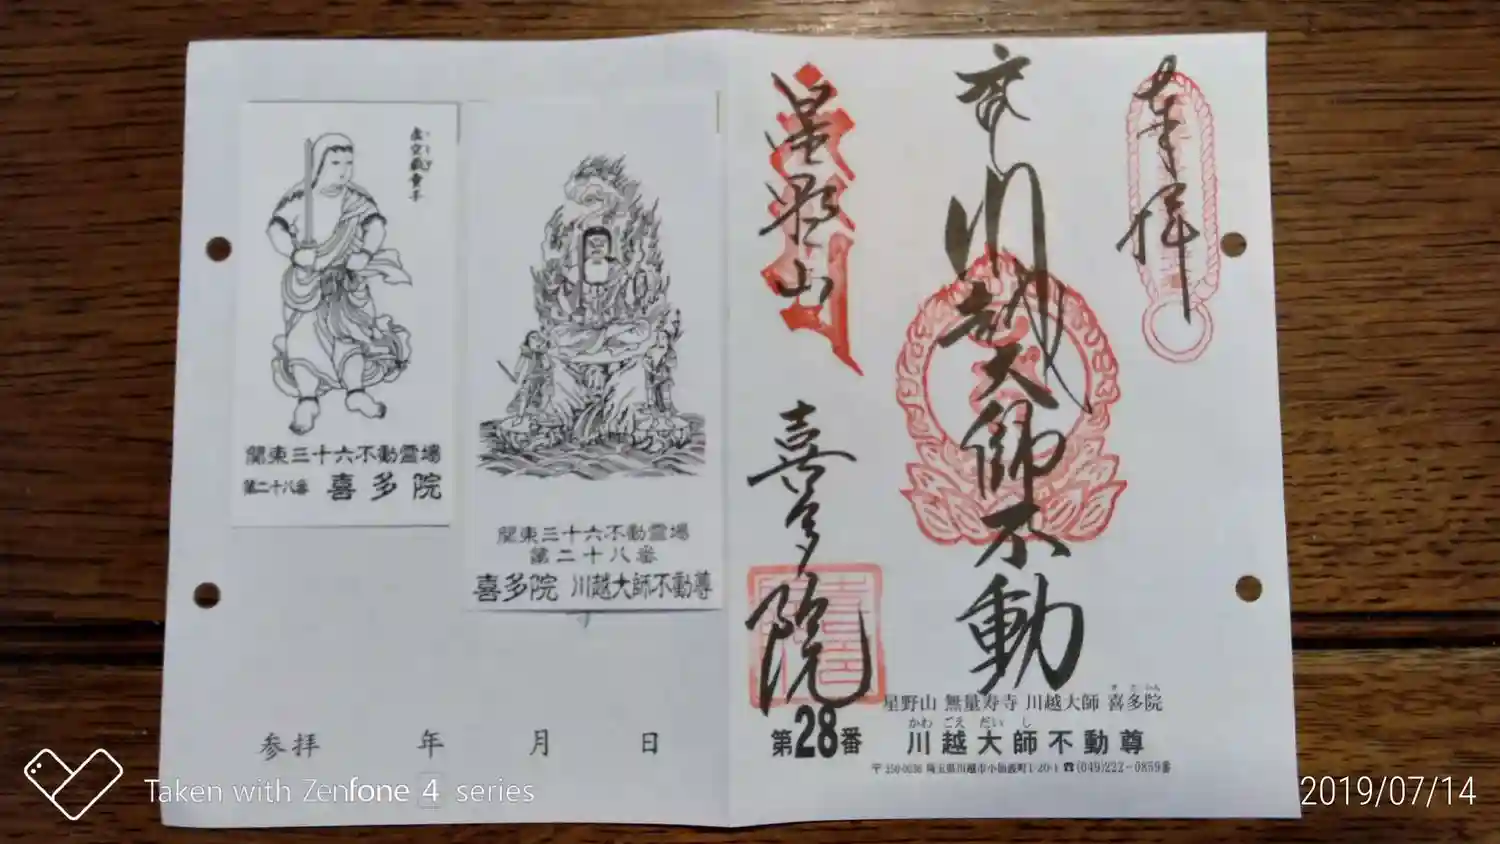 虚空蔵童子
関東三十六不動霊場
第二十八番 喜多院
関東三十六不動霊場
第二十八番
喜多院 川越大師不動尊
参拝 年 月 日
奉拝
川越大師不動
星野山
喜多院
星野山 無量寿寺 川越大師 喜多院
きたいん
第28番
かわ ごえ だい し
川越大師不動尊
埼玉県川越市小仙波町1-20-1 ☎(049)222-0859番
Taken with Zenfone 4 series
2019/07/14